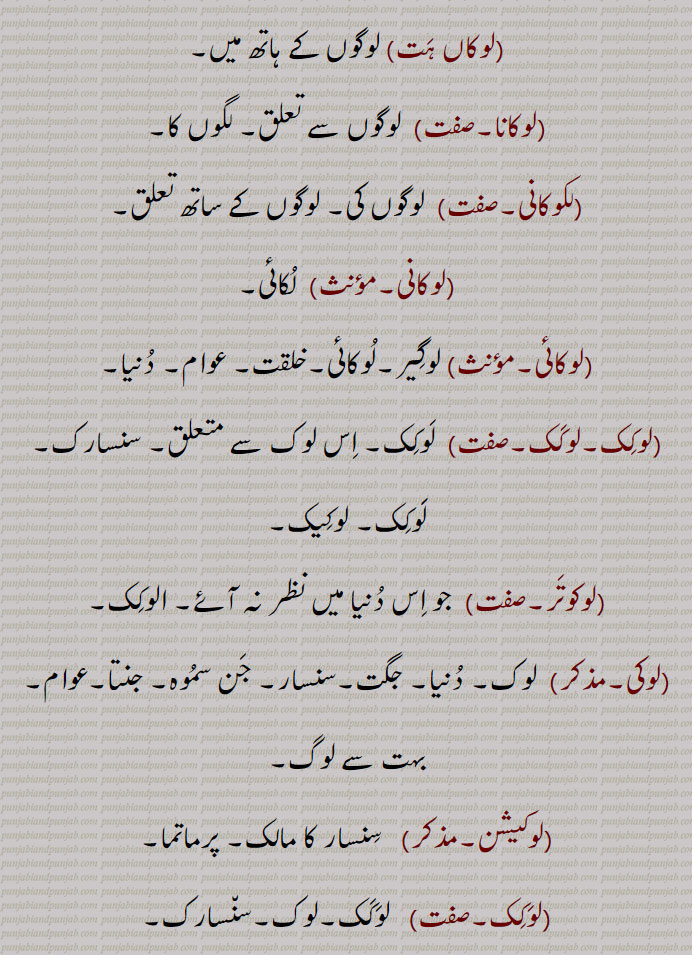 (لوکاں ہَت) لوگوں کے ہاتھ میں۔
(لوکانا۔صفت) لوگوں سے تعلق۔ لگوں کا۔
(لکوکانی۔صفت) لوگوں کی۔ لوگوں کے ساتھ تعلق۔
(لوکانی۔مؤنث) لُکائی۔
(لوکائی۔مؤنث) لوگِیر۔لُوکائی۔خلقت۔ عوام۔ دُنیا۔
(لوکِک۔لوکَک۔صفت) لَوکِک۔ اِس لوک سے متعلق۔ سنسارک۔
لَوکِک۔ لوکِیک۔
(لوکوتَر۔صفت) جو اِس دُنیا میں نظر نہ آئے۔ الوکِک۔
(لوکی۔مذکر) لوک۔ دُنیا۔ جگت۔سنسار۔ جَن سمُوہ۔ جنتا۔عوام۔
بہت سے لوگ۔
(لوکیشن۔مذکر) سِنسار کا مالک۔ پرماتما۔
(لوَکِک۔صفت) لوَکَک۔لوک۔سنّسارک۔